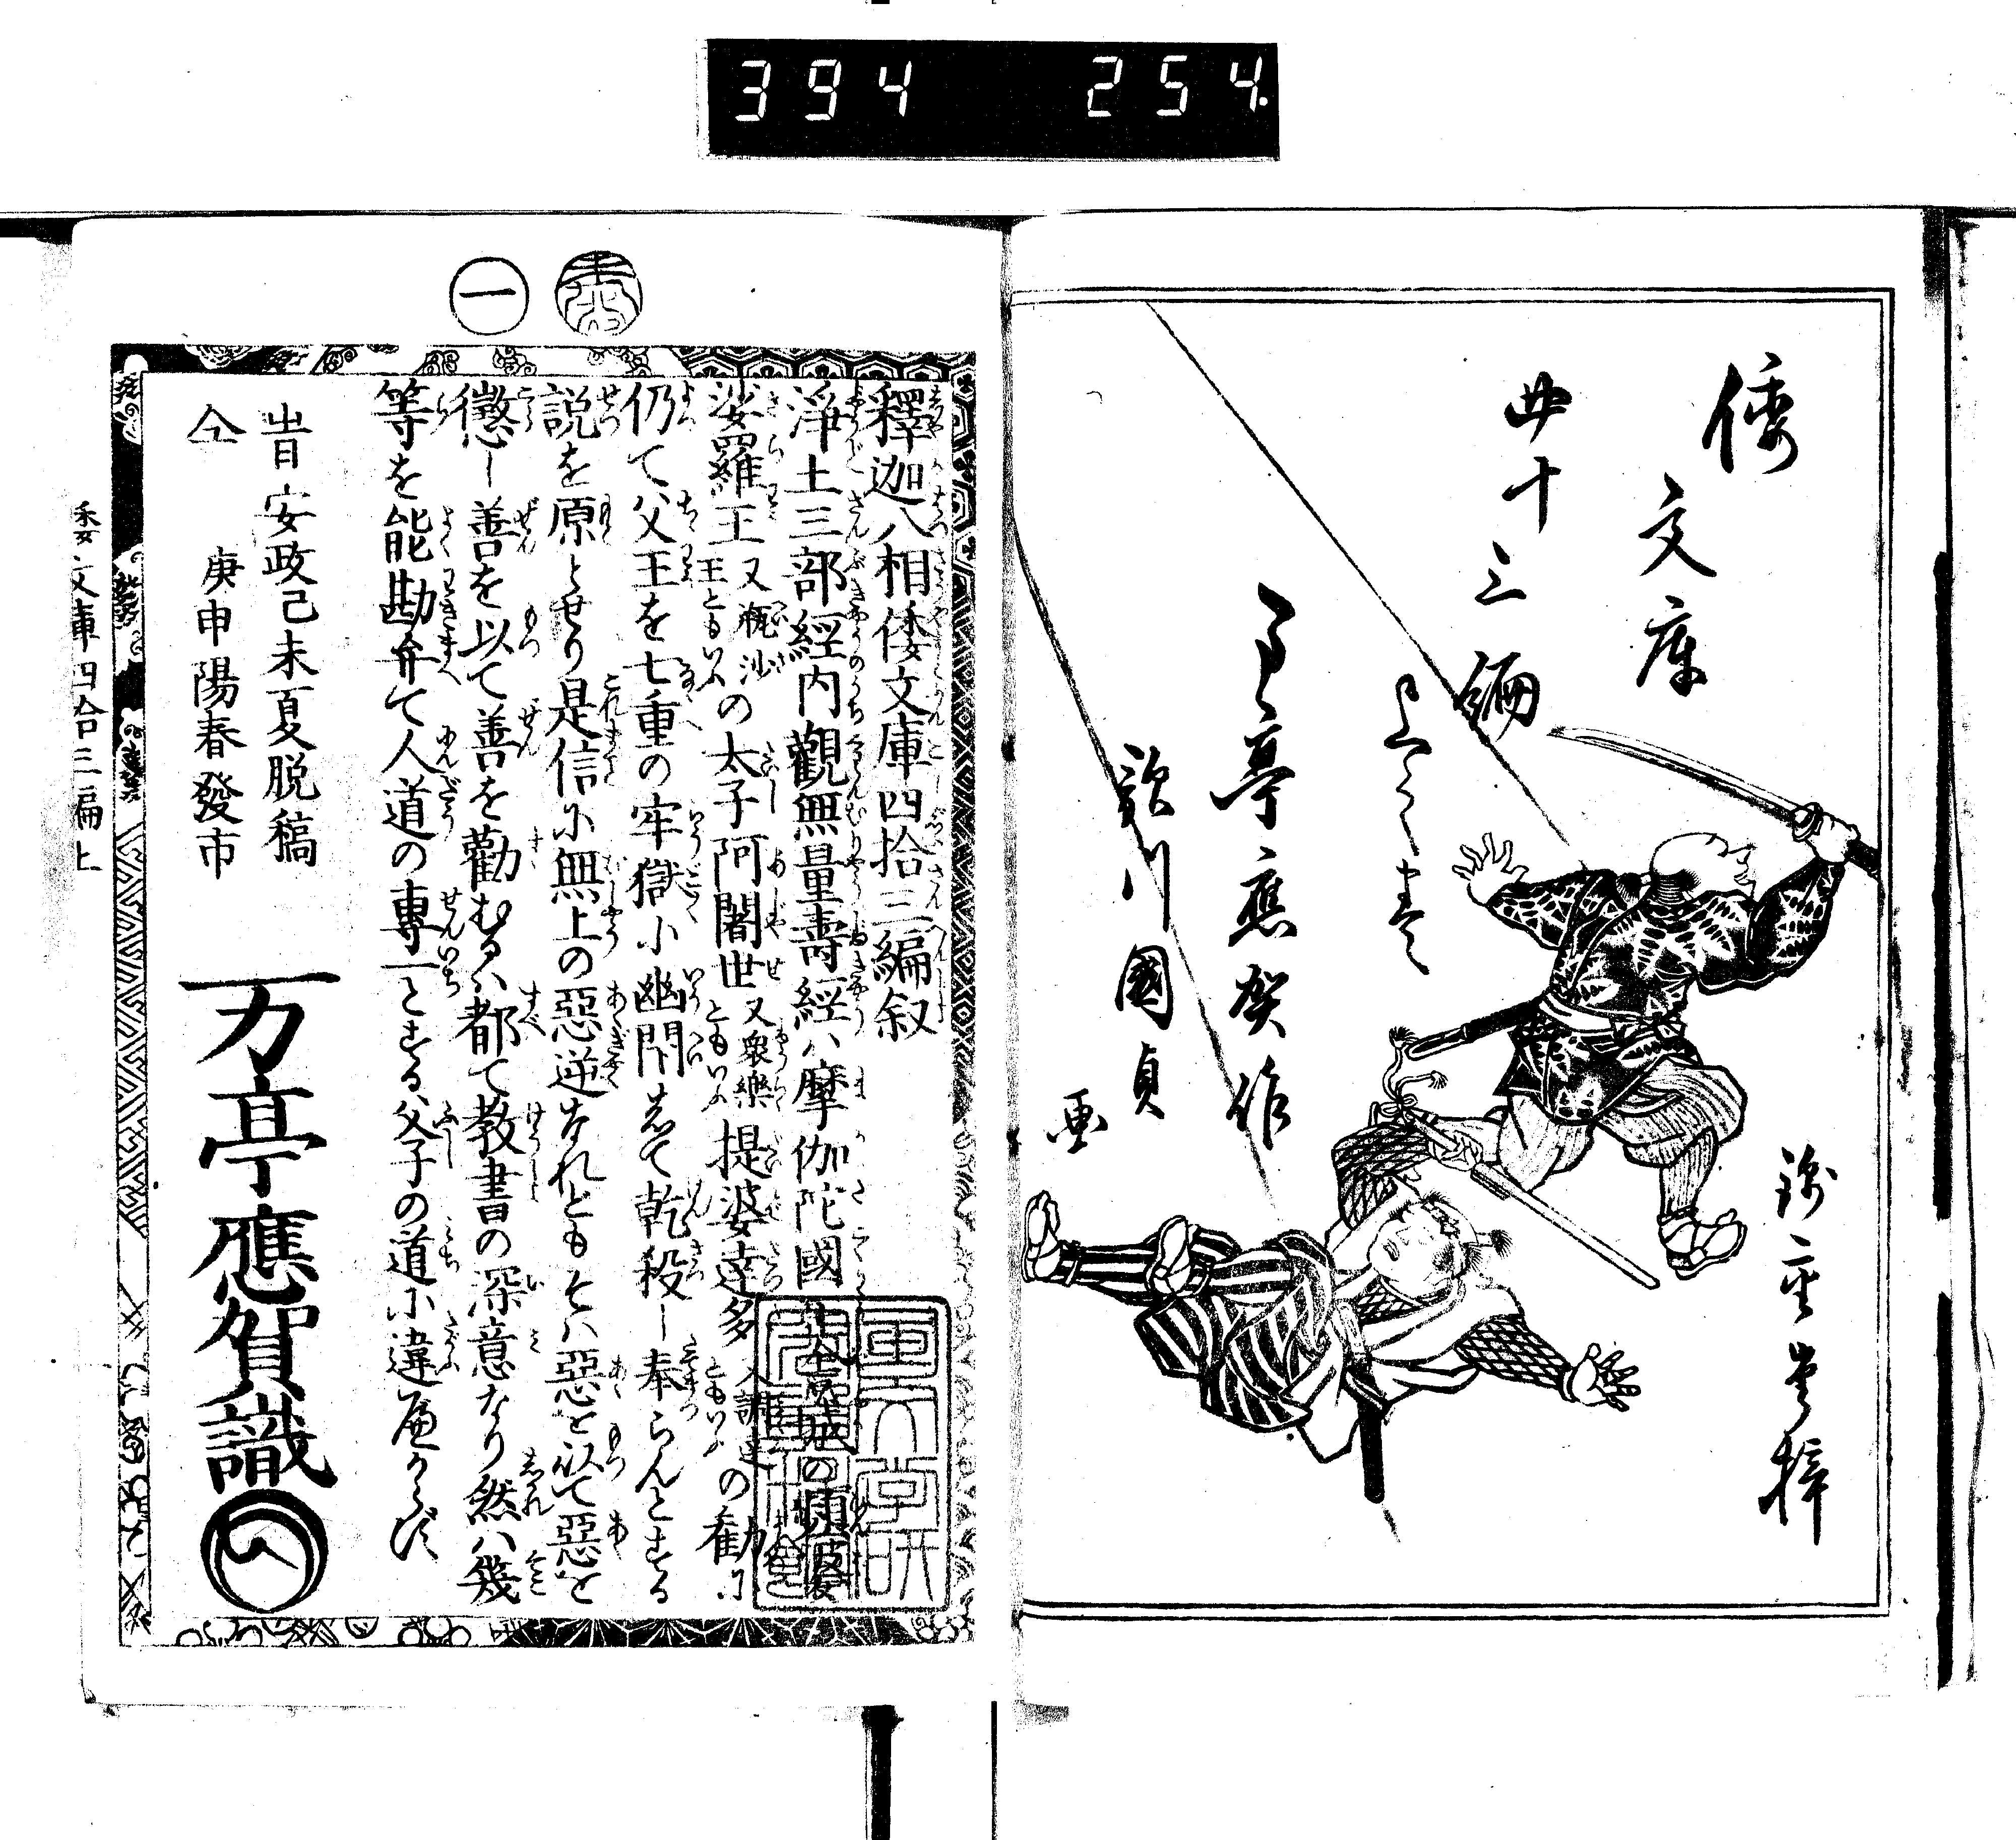 394 254
倭
文庫
四十三編
上之巻
万亭應賀作
歌川國貞
画
錦重堂梓
一
釋迦八相倭文庫四拾三編叙
浄土三部經内觀無量壽經ハ摩伽陀國王舎城の頻婆
娑羅王又瓶沙王ともいふの太子阿闍世又衆樂ともいふ提婆達多又調達ともいふの勸に
仍て父王を七重の牢獄小幽閉して乾殺し奉らんとする
説を原とせり是信に無上の惡逆なれどもそハ惡を以て惡を
懲し善を以て善を勸むるハ都て教書の深意なり然ハ幾
等を能勘弁て人道の專一とする父子の道小違べからず
旹安政己未夏脱稿
仝 庚申陽春發市
万亭應賀識
倭文庫四拾三編上